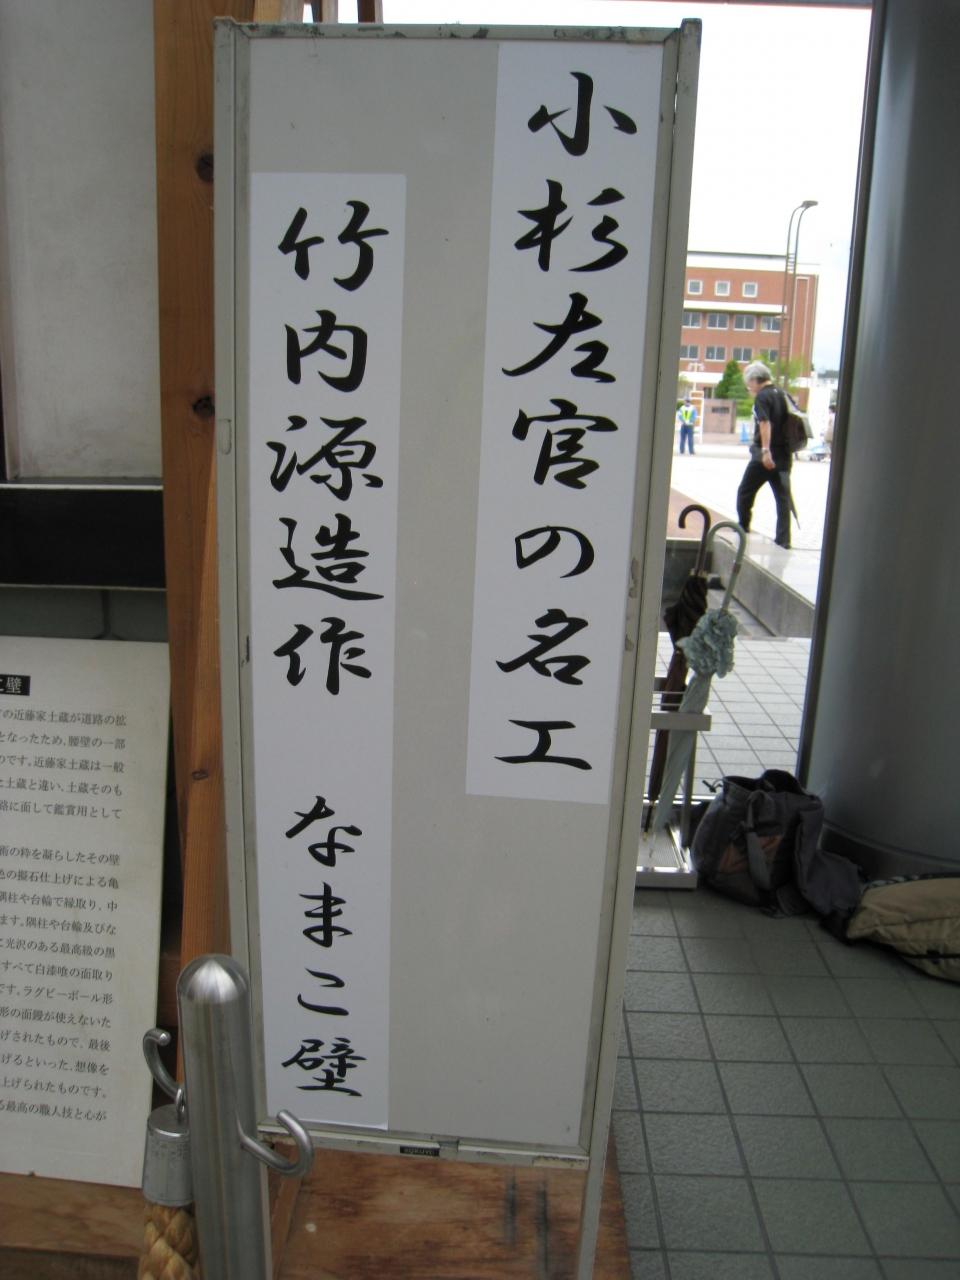 小杉左官の名工
竹内源造作 なまこ壁
壁
の近藤家土蔵が道路の拡
となったため、腰壁の一部
のです。近藤家土蔵は一般
土蔵と違い、土蔵そのも
路に面して鑑賞用として
術の粋を凝らしたその壁
色の擬石仕上げによる亀
隅柱や台輪で縁取り、中
ます。隅柱や台輪及びな
光沢のある最高級の黒
すべて白漆喰の面取り
です。ラグビーボール形
形の面鏝が使えないた
げされたもので、最後
げるといった、想像を
上げられたものです。
る最高の職人技と心が